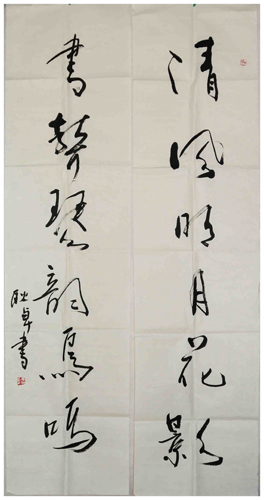 清风明月花影
书声琴韵鸟鸣
耿卓书